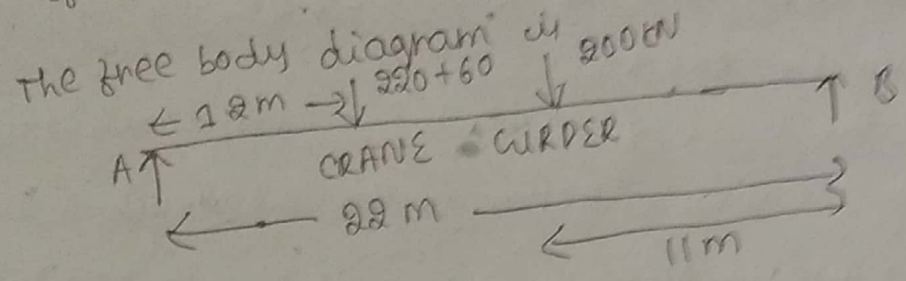 The free body diagram is
← 1.2m → 220+60 200kN
A CRANE GIRDER B
22 m
11m